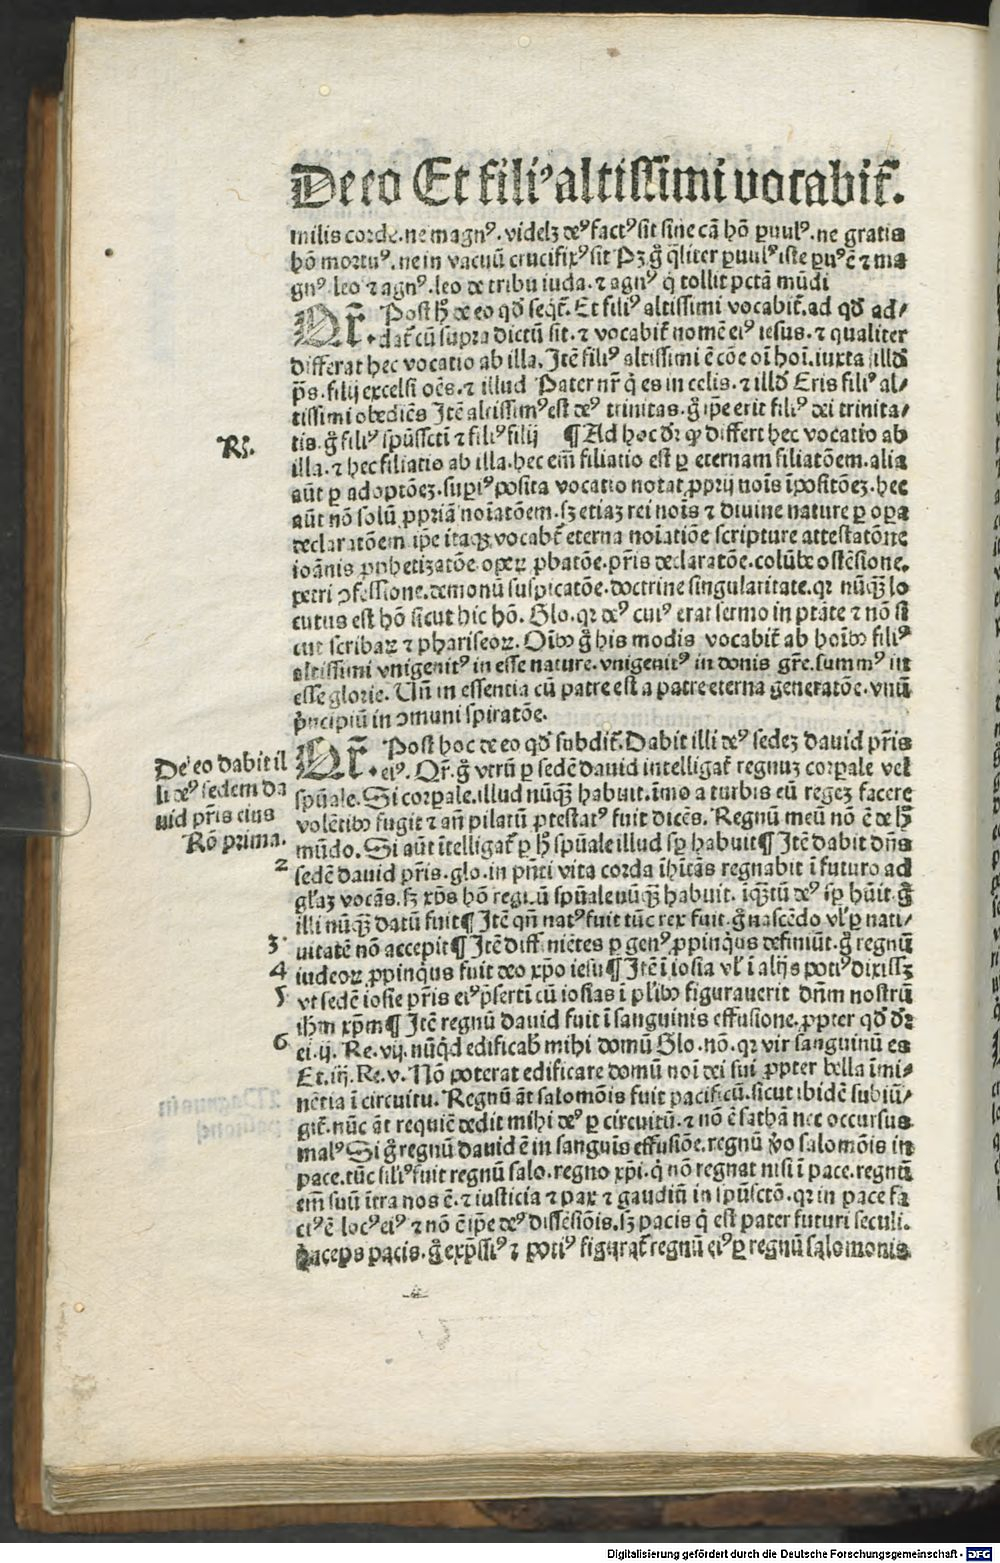 De eo Et fili⁹ altissimi vocabit̄.
milis corde. ne magn⁹. videlꝫ de⁹ fact⁹ sit sine cā hō puul⁹. ne gratis
hō mortu⁹. ne in vacuū crucifix⁹ sit Pꝫ g̊ q̄liter puul⁹ iste pu⁹ ē ⁊ ma
gn⁹ leo ⁊ agn⁹. leo de tribu iuda. ⁊ agn⁹ q̇ tollit pctā mūdi
Qr̄. Post h̄ de eo qd̄ seqt̄. Et fili⁹ altissimi vocabit̄. ad qd̄ ad/
dat̄ cū supra dictū sit. ⁊ vocabit̄ nomē ei⁹ iesus. ⁊ qualiter
differat hec vocatio ab illa. Itē fili⁹ altissimi ē cōe oī hoī. iuxta illd̄
p̄s. filij excelsi oēs. ⁊ illud Pater nr̄ q̇ es in celis. ⁊ illd̄ Eris fili⁹ al/
tissimi obediēs Itē altissim⁹ est de⁹ trinitas. g̊ ip̄e erit fili⁹ dei trinita/
Rs.
tis. g̊ fili⁹ sp̄ūssctī ⁊ fili⁹ filij ¶ Ad hoc dr̄ ꝙ differt hec vocatio ab
illa. ⁊ hec filiatio ab illa. hec em̄ filiatio est ꝑ eternam filiatōem. alia
aūt ꝑ adoptōeꝫ. supi⁹ posita vocatio notat ꝓprij nois īpositōeꝫ. hec
aūt nō solū ꝓpriā noīatōem. sꝫ etiaꝫ rei noīs ⁊ divine nature ꝑ opa
declaratōem ip̄e itaqꝫ vocabit̄ eterna noīatiōe scripture attestatōne
ioānis ꝓphetizatōe opeꝝ ꝓbatōe. pr̄is declaratōe. colūbe ostēsione.
petri ꝯfessione. demonū suspicatōe. doctrine singularitate. qr nūqꝫ lo
cutus est hō sicut hic hō. Glo. qr de⁹ cui⁹ erat sermo in ptāte ⁊ nō si
cut scribaꝝ ⁊ phariseoꝝ. Oībꝰ g̊ his modis vocabit̄ ab hoībꝰ fili⁹
altissimi vnigenit⁹ in esse nature. vnigenit⁹ in donis gr̄e. summ⁹ in
esse glorie. Un̄ in essentia cū patre est a patre eterna generatōe. vnū
p̄ncipiū in ꝯmuni spiratōe.
De eo dabit il
li de⁹ sedem da
uid pr̄is eius
Rō prima.
Qr̄. Post hoc de eo qd̄ subdit̄. Dabit illi de⁹ sedeꝫ dauid pr̄is
ei⁹. Qr̄. g̊ vtrū ꝑ sedē dauid intelligat̄ regnuꝫ corpale vel
sp̄uale. Si corpale. illud nūqꝫ habuit. imo a turbis eū regeꝫ facere
volētibꝰ fugit ⁊ an̄ pilatū ꝓtestat⁹ fuit dicēs. Regnū meū nō ē de h̄
mūdo. Si aūt ītelligat̄ ꝑ h̄ sp̄uale illud sp̄ habuit ¶ Itē dabit dn̄s
2
sedē dauid pr̄is. glo. in pn̄ti vita corda īhītās regnabit ī futuro ad
gl'aꝫ vocās. sꝫ xp̄s hō regnū sp̄uale nūqꝫ habuit. iqꝫtū de⁹ sp̄ hūit. g̊
illi nūqꝫ datū fuit ¶ Itē qn̄ nat⁹ fuit tūc rex fuit. g̊ nascēdo vl' ꝑ nati/
3
uitatē nō accepit ¶ Itē diffiniētes ꝑ gen⁹ ꝓpinq̇us definiūt. g̊ regnū
4
iudeoꝝ ꝓpinq̇us fuit deo xp̄o iesu ¶ Itē ī iosia vl' ī alijs poti⁹ dixissꝫ
5
vt sedē iosie pr̄is ei⁹ p̄sertī cū iosias ī pl'ibꝰ figurauerit dn̄m nostrū
ih̄m xp̄m ¶ Itē regnū dauid fuit ī sanguinis effusione. ꝓpter qd̄ dr̄
6
ei. ij. Re. vij. nūq̇d edificab̄ mihi domū Glo. nō. qr vir sanguinū es
Et. iij. Re. v. Nō poterat edificare domū noī dei sui ꝓpter bella īmi/
nētia ī circuitu. Regnū āt salomōis fuit pacificū. sicut ibidē subiū/
git̄. nūc āt requiē dedit mihi de⁹ ꝑ circuitū. ⁊ nō ē sathā nec occursus
mal⁹ Si g̊ regnū dauid ē in sanguīs effusiōe. regnū v̊o salomōis in
pace. tūc sil'i⁹ fuit regnū salo. regno xp̄i. q̇ nō regnat nisi ī pace. regnū
em̄ suū ītra nos ē. ⁊ iusticia ⁊ pax ⁊ gaudiū in sp̄ūsctō. qr in pace fa
ct⁹ ē loc⁹ ei⁹ ⁊ nō ē ip̄e de⁹ dissēsiōis. sꝫ pacis q̇ est pater futuri seculi.
p̄nceps pacis. g̊ exp̄ssi⁹ ⁊ poti⁹ figurat̄ regnū ei⁹ ꝑ regnū salomonis
Digitalisierung gefördert durch die Deutsche Forschungsgemeinschaft - DFG